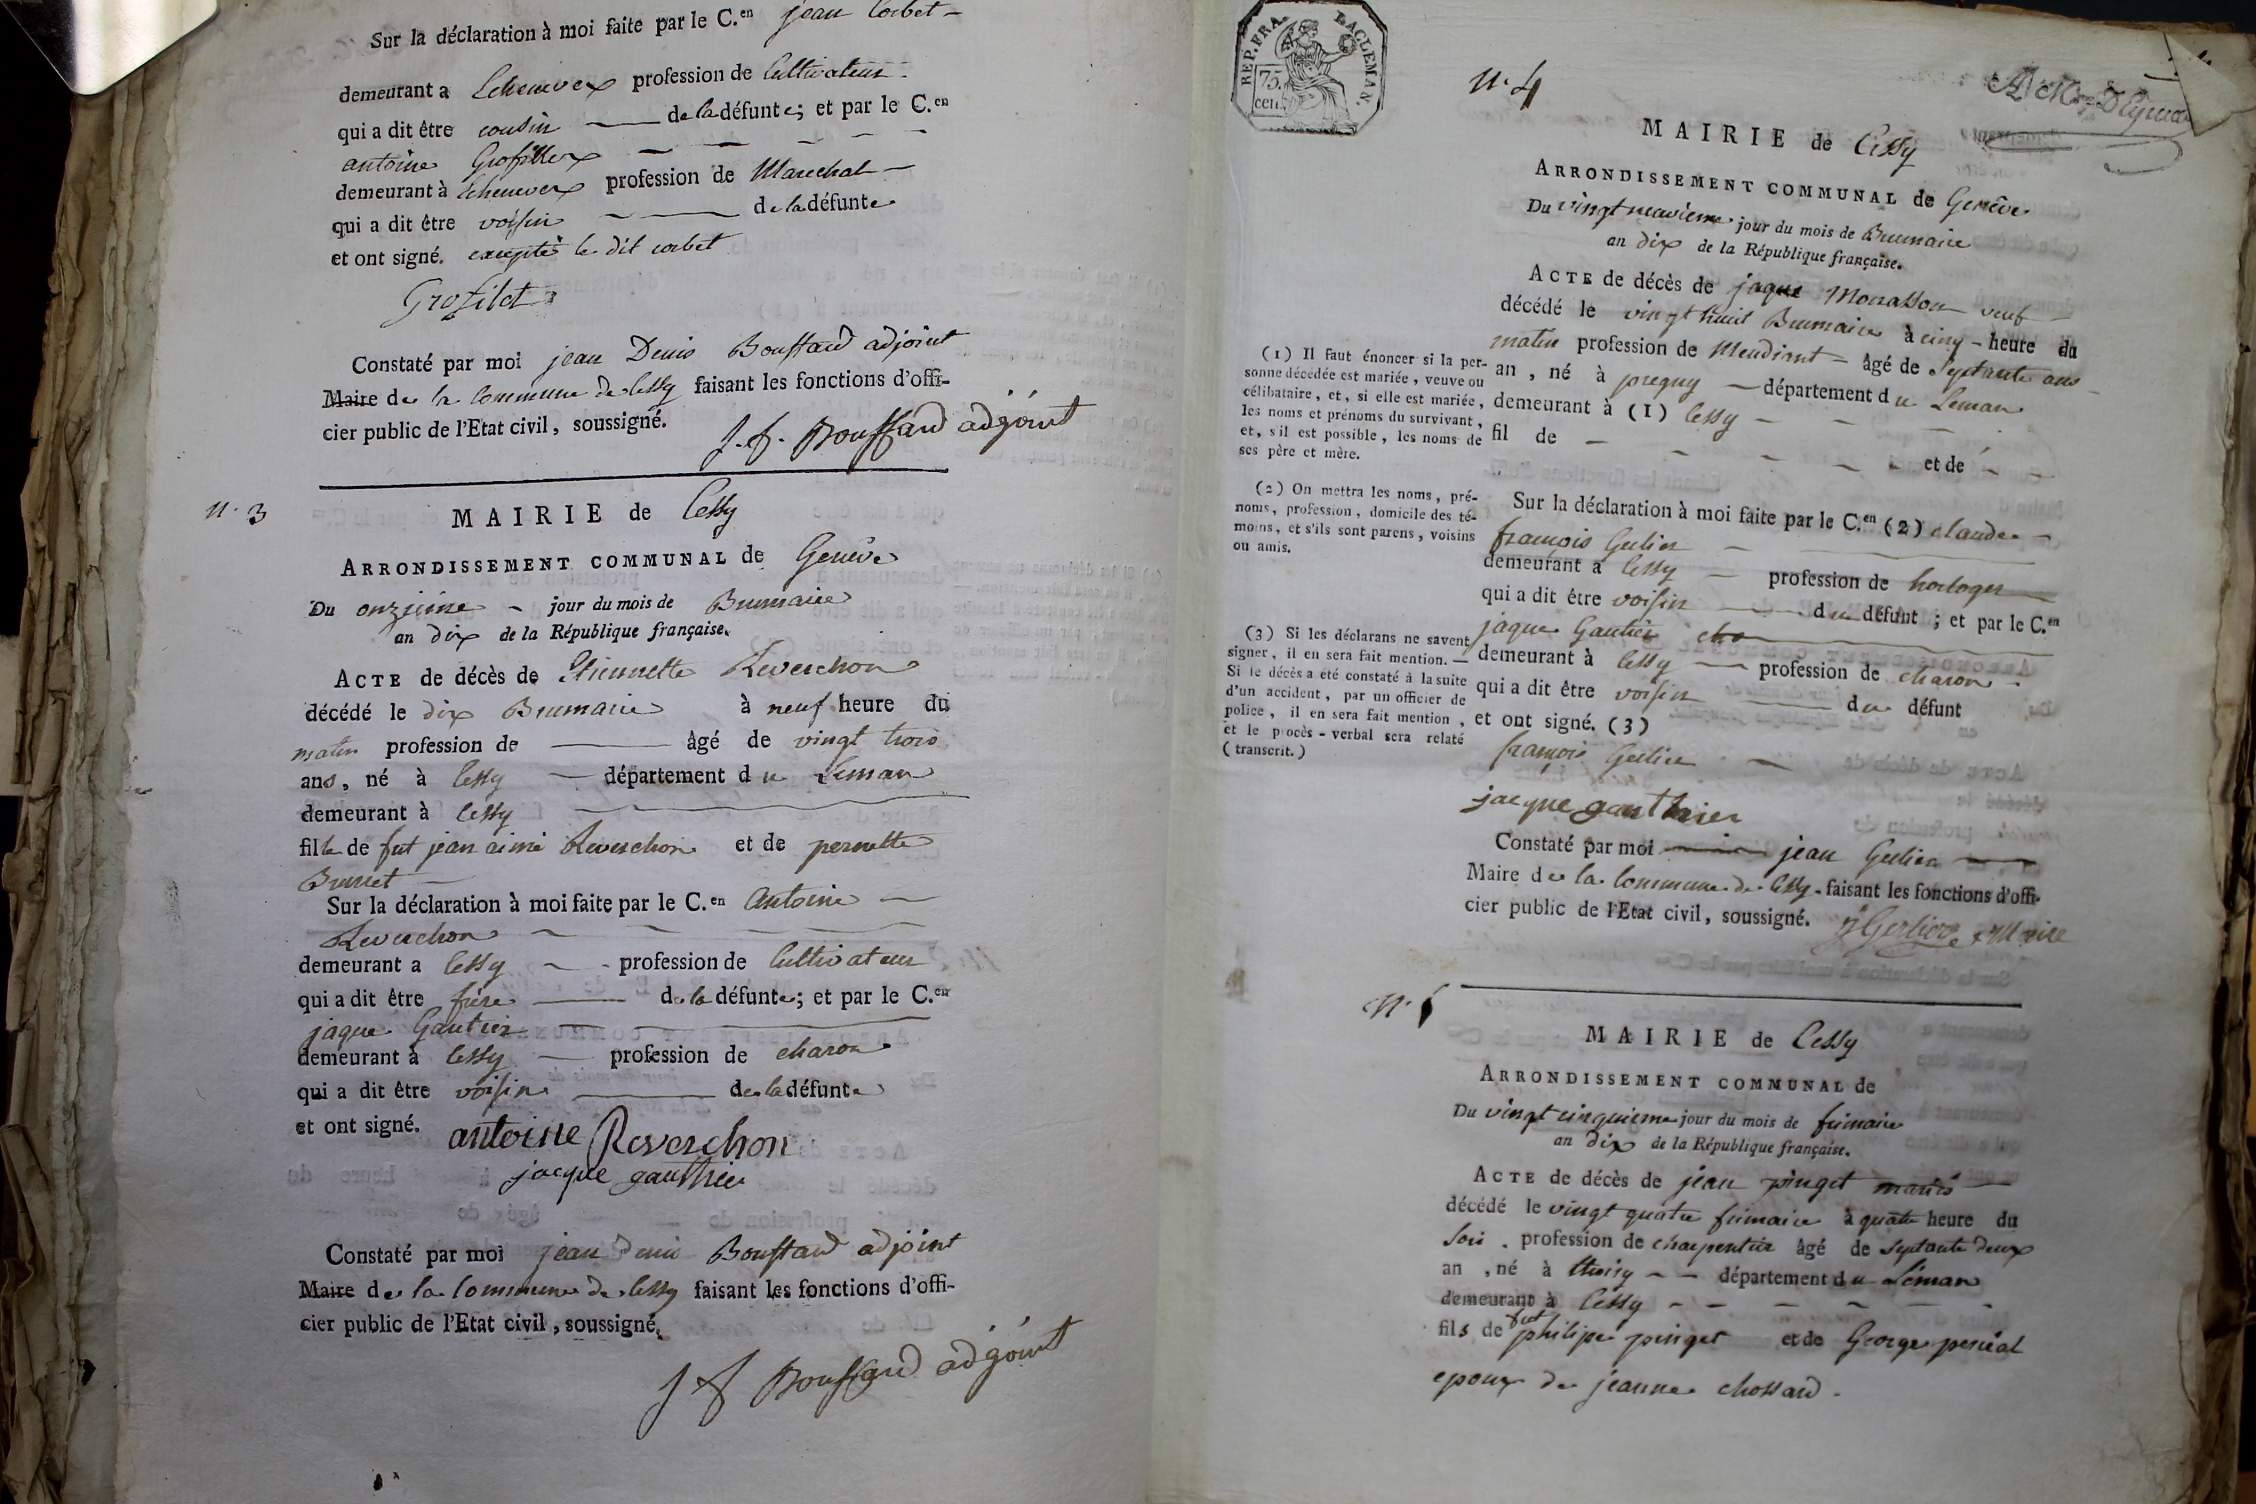 Sur la déclaration à moi faite par le C.en jean Corbet
demeurant a Echenevex profession de Cultivateur
qui a dit être cousin de la défunte; et par le C.en
antoine Grofillex
demeurant à Echenevex profession de Marechal
qui a dit être voisin de la défunte
et ont signé. excepté le dit corbet
Grofilet
Constaté par moi jean Denis Bouffard adjoint
Maire de la Commune de Cessy faisant les fonctions d'offi-
cier public de l'Etat civil, soussigné.
J. D. Bouffard adjoint
N. 3
MAIRIE de Cessy
ARRONDISSEMENT COMMUNAL de Genève
Du onzième jour du mois de Brumaire
an dix de la République française.
ACTE de décès de Etiennette Reverchon
décédé le dix Brumaire à neuf heure du
matin profession de âgé de vingt trois
ans, né à Cessy département du Leman
demeurant à Cessy
fille de fut jean aimé Reverchon et de pernette
Brunet
Sur la déclaration à moi faite par le C.en Antoine
Reverchon
demeurant a Cessy profession de Cultivateur
qui a dit être frère de la défunte; et par le C.en
jaque Gautier
demeurant à Cessy profession de charon
qui a dit être voisin de la défunte
et ont signé.
antoine Reverchon
jacque gauthier
Constaté par moi jean denis Bouffard adjoint
Maire de la Commune de Cessy faisant les fonctions d'offi-
cier public de l'Etat civil, soussigné.
J D Bouffard adjoint
REP. FRA.
75.
cen.
LAC LEMAN.
N. 4
MAIRIE de Cessy
ARRONDISSEMENT COMMUNAL de Genêve
Du vingt neuvieme jour du mois de Brumaire
an dix de la République française.
ACTE de décès de jaque veuf
décédé le vingt huit Brumaire à cinq heure du
matin profession de Mendiant âgé de Septante ans
an, né à pregny département du Leman
demeurant à (1) Cessy
fil de et de
(1) Il faut énoncer si la per-
sonne décédée est mariée, veuve ou
célibataire, et, si elle est mariée,
les noms et prénoms du survivant,
et, s'il est possible, les noms de
ses père et mère.
Sur la déclaration à moi faite par le C.en (2) claude
françois Gerlier
demeurant a Cessy profession de horloger
qui a dit être voisin du défunt; et par le C.en
jaque Gautier
demeurant à Cessy profession de charon
qui a dit être voisin du défunt
et ont signé. (3)
(2) On mettra les noms, pré-
noms, profession, domicile des té-
moins, et s'ils sont parens, voisins
ou amis.
(3) Si les déclarans ne savent
signer, il en sera fait mention. —
Si le décès a été constaté à la suite
d'un accident, par un officier de
police, il en sera fait mention,
et le procès-verbal sera relaté
(transcrit.)
françois Gerlier
jacque gauthier
Constaté par moi jean Gerlier
Maire de la Commune de Cessy faisant les fonctions d'offi-
cier public de l'Etat civil, soussigné. J Gerlier Maire
N. 5
MAIRIE de Cessy
ARRONDISSEMENT COMMUNAL de
Du vingt cinquieme jour du mois de frimaire
an dix de la République française.
ACTE de décès de jean pinget
décédé le vingt quatre frimaire à quatre heure du
soir profession de charpentier âgé de Septante deux
an, né à thoiry département du Léman
demeurant à Cessy
fils de fut philipe pinget et de George
epoux de jeanne chossard